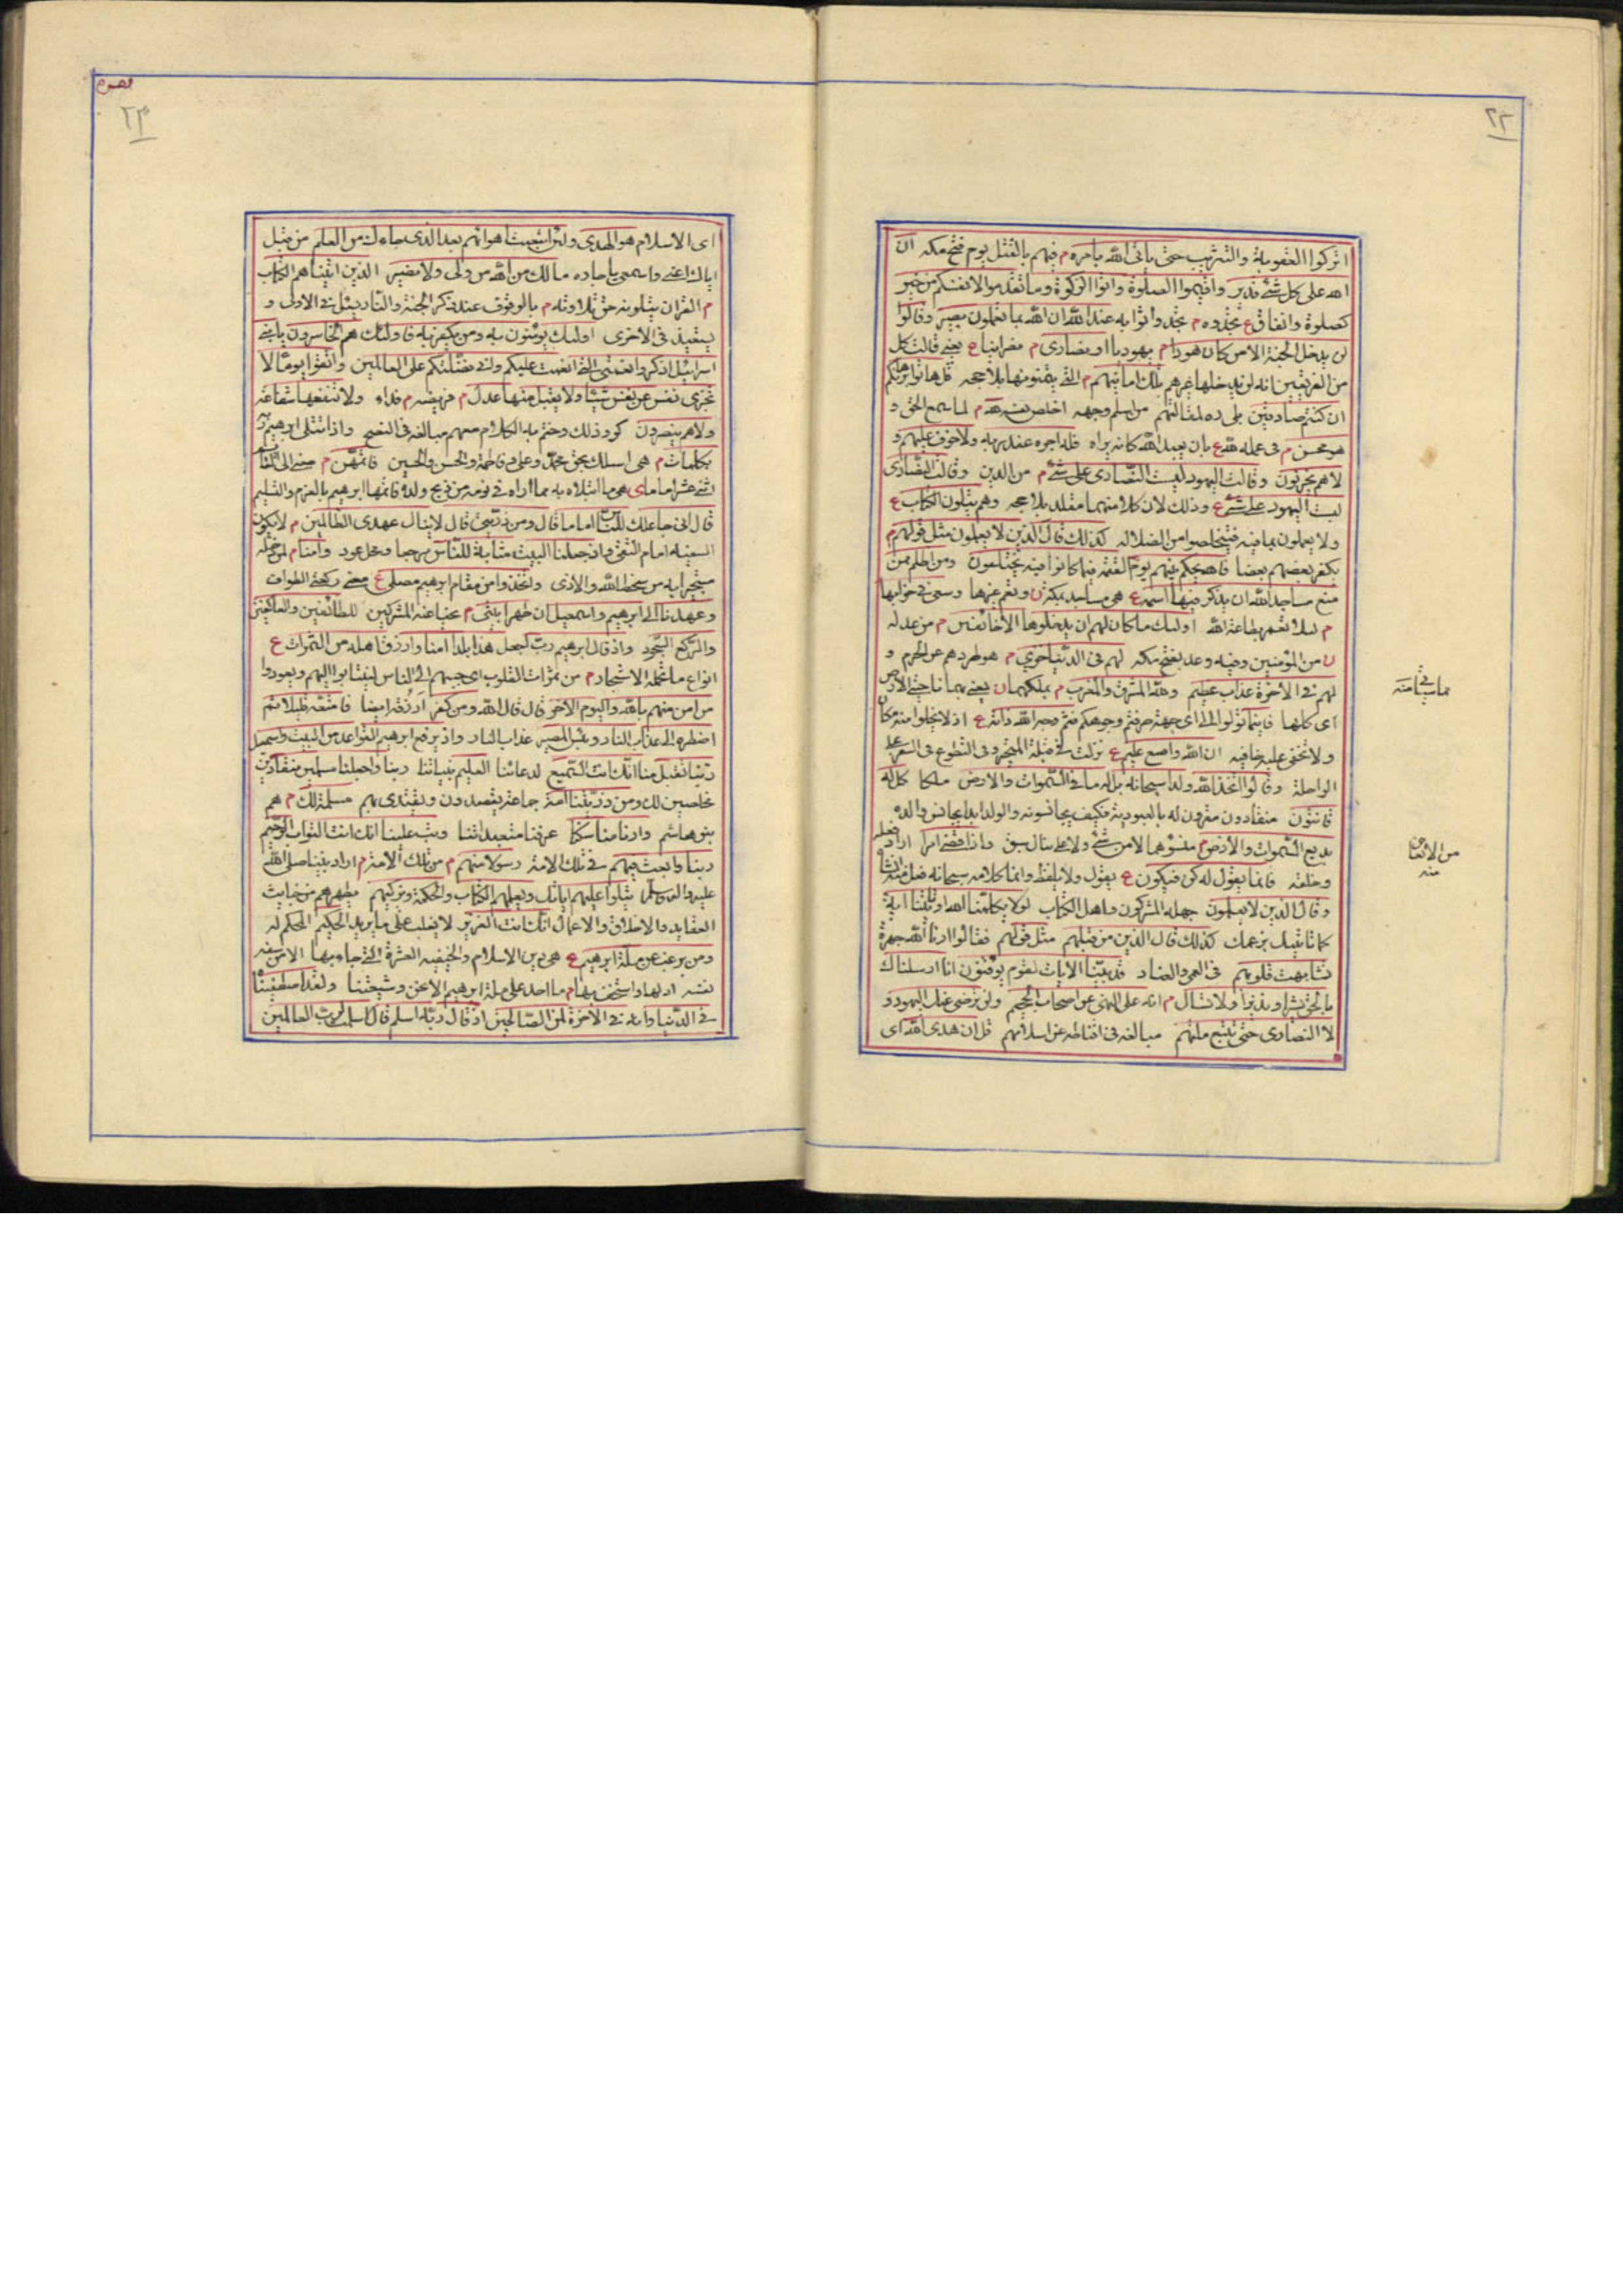 ٢٢
اتركوا العقوبة والتثريب حتى ياتى الله بامره م فيهم بالقتل يوم فتح مكه ان
الله على كل شئ قدير واقيموا الصلوة واتوا الزكوة وما تقدموا لانفسكم من خير
كصلوة وانفاق ع تجدوه م تجدوا ثوابه عند الله ان الله بما تعملون بصير وقالوا
لن يدخل الجنة الا من كان هودا م يهوديا او نصارى م نصرانيا ع يعنى قالت كل
من الفريقين انه لن يدخلها غيرهم تلك امانيهم م التى يتمنونها بلا حجه قل هاتوا برهانكم
ان كنتم صادقين بلى رد لمقالتهم من اسلم وجهه اخلص نفسه لله م لما سمع الحق و
هو محسن م فى عمله لله ع بان يعبد الله كانه يراه فله اجره عند ربه ولا خوف عليهم و
لا هم يحزنون وقالت اليهود ليست النصارى على شئ م من الدين وقالت النصارى
ليست اليهود على شئ ع وذلك لان كلا منهما مقلد بلا حجه وهم يتلون الكتاب ع
ولا يعملون بما فيه فيتخلصوا من الضلاله كذلك قال الذين لا يعلمون مثل قولهم م
يكفر بعضهم بعضا فالله يحكم بينهم يوم القيمة فيما كانوا فيه يختلفون ومن اظلم ممن
منع مساجد الله ان يذكر فيها اسمه ع هى مساجد بمكة ن ونعم غيرها وسعى فى خرابها
م لئلا تعمر بطاعة الله اولئك ما كان لهم ان يدخلوها الا خائفين م من عدله
ن من المؤمنين وفيه وعد بفتح مكه لهم فى الدنيا خزى م هو طردهم عن الحرم و
لهم فى الاخرة عذاب عظيم ولله المشرق والمغرب م يملكهما ن يعنى بهما ناحيتى الارض
اى كلها فاينما تولوا الى اى جهة صرفتم وجوهكم فثم وجه الله ذاته ع اذ لا يخلوا منه مكان
ولا تخفى عليه خافيه ان الله واسع عليم ع نزلت فى قبلة المتحير وفى التطوع فى السفر على
الراحلة وقالوا اتخذ الله ولدا سبحانه بل له ما فى السموات والارض ملكا كل له
قانتون منقادون مقرون له بالعبودية فكيف يجانسونه والولد ابدا يجانس والده
بديع السموات والارض م منشؤهما لا من شئ ولا على مثال سبق واذا قضى امرا اراد فعله
وخلقه فانما يقول له كن فيكون ع يقول ولا يلفظ وانما كلامه سبحانه فعل منه انشأه
وقال الذين لا يعلمون جهله المشركون واهل الكتاب لولا يكلمنا الله او تاتينا اية
كما تاتيك بزعمك كذلك قال الذين من قبلهم مثل قولهم فقالوا ارنا الله جهرة
تشابهت قلوبهم فى العمى والعناد قد بينا الايات لقوم يوقنون انا ارسلناك
بالحق بشيرا ونذيرا ولا تسال م انه على النهى عن اصحاب الجحيم ولن ترضى عنك اليهود و
لا النصارى حتى تتبع ملتهم مبالغة فى اقناطه عن اسلامهم قل ان هدى الله اى
منه
٢٣
اى الاسلام هو الهدى ولئن اتبعت اهوائهم بعد الذى جاءك من العلم من قبيل
اياك اعنى واسمعى يا جاره مالك من الله من ولى ولا نصير الذين اتيناهم الكتاب
م القران يتلونه حق تلاوته م بالوقوف عند ذكر الجنة والنار يسئل فى الاولى و
يستعيذ فى الاخرى اولئك يؤمنون به ومن يكفر به فاولئك هم الخاسرون يا بنى
اسرائيل اذكروا نعمتى التى انعمت عليكم وانى فضلتكم على العالمين واتقوا يوما لا
تجزى نفس عن نفس شيئا ولا يقبل منها عدل م فريضه م فداء ولا تنفعها شفاعة
ولا هم ينصرون كرر ذلك وختم به الكلام معهم مبالغة فى النصح واذ ابتلى ابرهيم ربه
بكلمات م هى اسئلك بحق محمد وعلى وفاطمة والحسن والحسين فاتمهن م يعنى الى القائم
اثنى عشر اماما ى هى ما ابتلاه به مما اراه فى نومه من ذبح ولده فاتمها ابرهيم بالعزم والتسليم
قال انى جاعلك للناس اماما قال ومن ذريتى قال لا ينال عهدى الظالمين م لا يكون
السفيه امام التقى واذ جعلنا البيت مثابة للناس مرجعا ومحل عود وامنا م لمن دخله
مستجيرا به من سخط الله والاذى واتخذوا من مقام ابرهيم مصلى ع يعنى ركعتى الطواف
وعهدنا الى ابرهيم واسمعيل ان طهرا بيتى م نحيا عنه المشركين للطائفين والعاكفين
والركع السجود واذ قال ابرهيم رب اجعل هذا بلدا امنا وارزق اهله من الثمرات ع
انواع ما تحمله الاشجار م من ثمرات القلوب اى حببهم الى الناس لينتابوا اليهم ويعودوا
من امن منهم بالله واليوم الاخر قال قال الله ومن كفر ارزقه ايضا فامتعه قليلا ثم
اضطره الى عذاب النار وبئس المصير عذاب النار واذ يرفع ابرهيم القواعد من البيت واسمعيل
ربنا تقبل منا انك انت السميع لدعائنا العليم بنياتنا ربنا واجعلنا مسلمين منقادين
مخلصين لك ومن ذريتنا امة جماعة يقصدون ويقتدى بهم مسلمة لك م هم
بنو هاشم وارنا مناسكنا عرفنا متعبداتنا وتب علينا انك انت التواب الرحيم
ربنا وابعث فيهم فى تلك الامة رسولا منهم م من تلك الامة م اراد نبينا صلى الله
عليه واله وسلم يتلوا عليهم اياتك ويعلمهم الكتاب والحكمة ويزكيهم يطهرهم من خبايث
العقايد والاخلاق والاعمال انك انت العزيز لا يغلب على ما يريد الحكيم المحكم له
ومن يرغب عن ملة ابرهيم ع هى دين الاسلام والحنيفيه العشرة التى جاء بها الا من سفه
نفسه اذلها واستخف بها م ما احد على ملة ابرهيم الا نحن وشيعتنا ولقد اصطفيناه
فى الدنيا وانه فى الاخرة لمن الصالحين اذ قال ربه اسلم قال اسلمت لرب العالمين